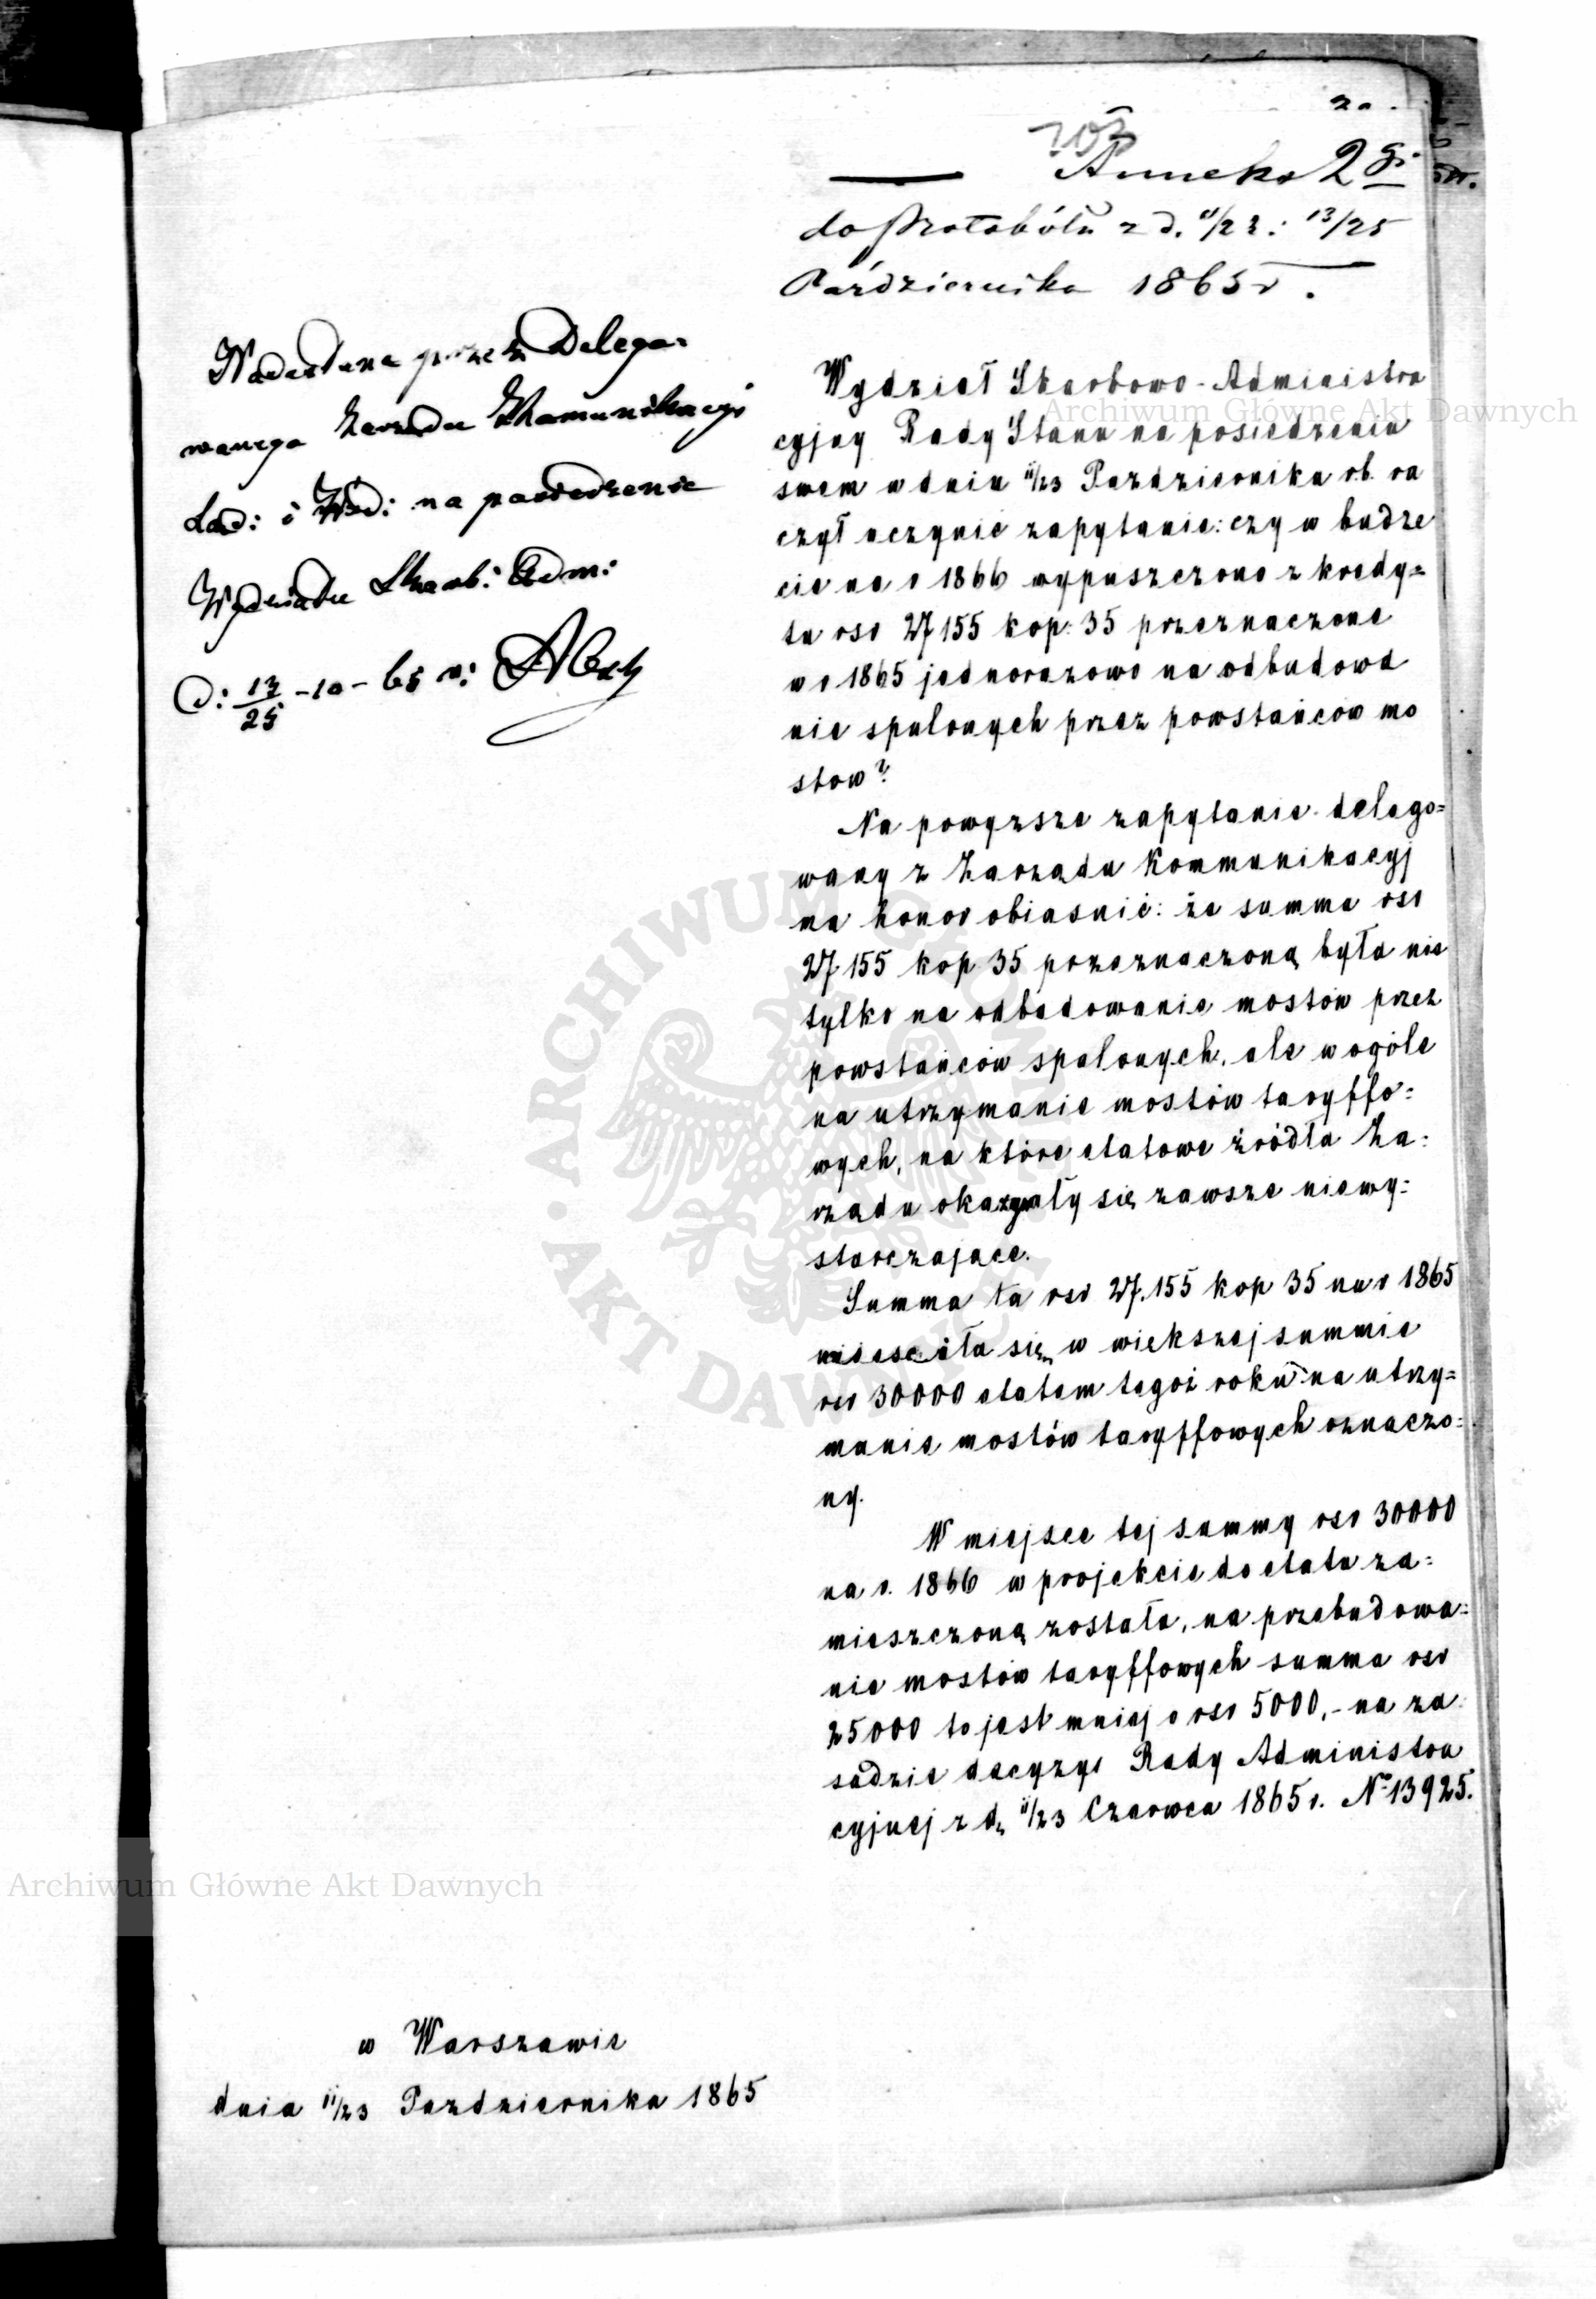 203
Anneks 2gi
do Protokółu z d. 11/23 : 13/25
Października 1865 r.
Nadesłana przez Delego-
wanego Zarządu Kommunikacyi
Ląd: i Wod: na posiedzenie
Wydziału Skarb: Adm:
d: 13/25 -10- 65 r:
Wydział Skarbowo-Administra
cyjny Rady Stanu na posiedzeniu
swem w dniu 11/23 Pazdziernika r.b. ra
czył uczynić zapytanie: czy w budże
cie na r 1866 wypuszczono z kredy=
tu rsr 27155 kop: 35 przeznaczone
w r 1865 jednorazowo na odbudowa
nie spalonych przez powstańców mo
stow?
Na powyzsze zapytanie delego=
wany z Zarządu Kommunikacyj
ma honor obiasnić: że summa rsr
27.155 kop 35 przeznaczoną była nie
tylko na odbudowanie mostów przez
powstańców spalonych, ale w ogóle
na utrzymanie mostów taryffo=
wych, na które etatowe źródła Za=
rządu okazywały się zawsze niewy=
starczające.
Summa ta rsr 27.155 kop 35 na r 1865
miesciła się w większej summie
rsr 30000 etatem tegoż roku na utrzy=
manie mostów taryffowych oznaczo=
ny.
W miejsce tej summy rsr 30000
na r. 1866 w projekcie do etatu za=
mieszczoną została, na przebudowa=
nie mostów taryffowych summa rsr
25000 to jest mniej o rsr 5000,- na za
sadzie decyzyi Rady Administra
cyjnej z d. 11/23 Czerwca 1865 r. No 13925.
w Warszawie
dnia 11/23 Pazdziernika 1865
Archiwum Główne Akt Dawnych
Archiwum Główne Akt Dawnych
ARCHIWUM GŁÓWNE AKT DAWNYCH